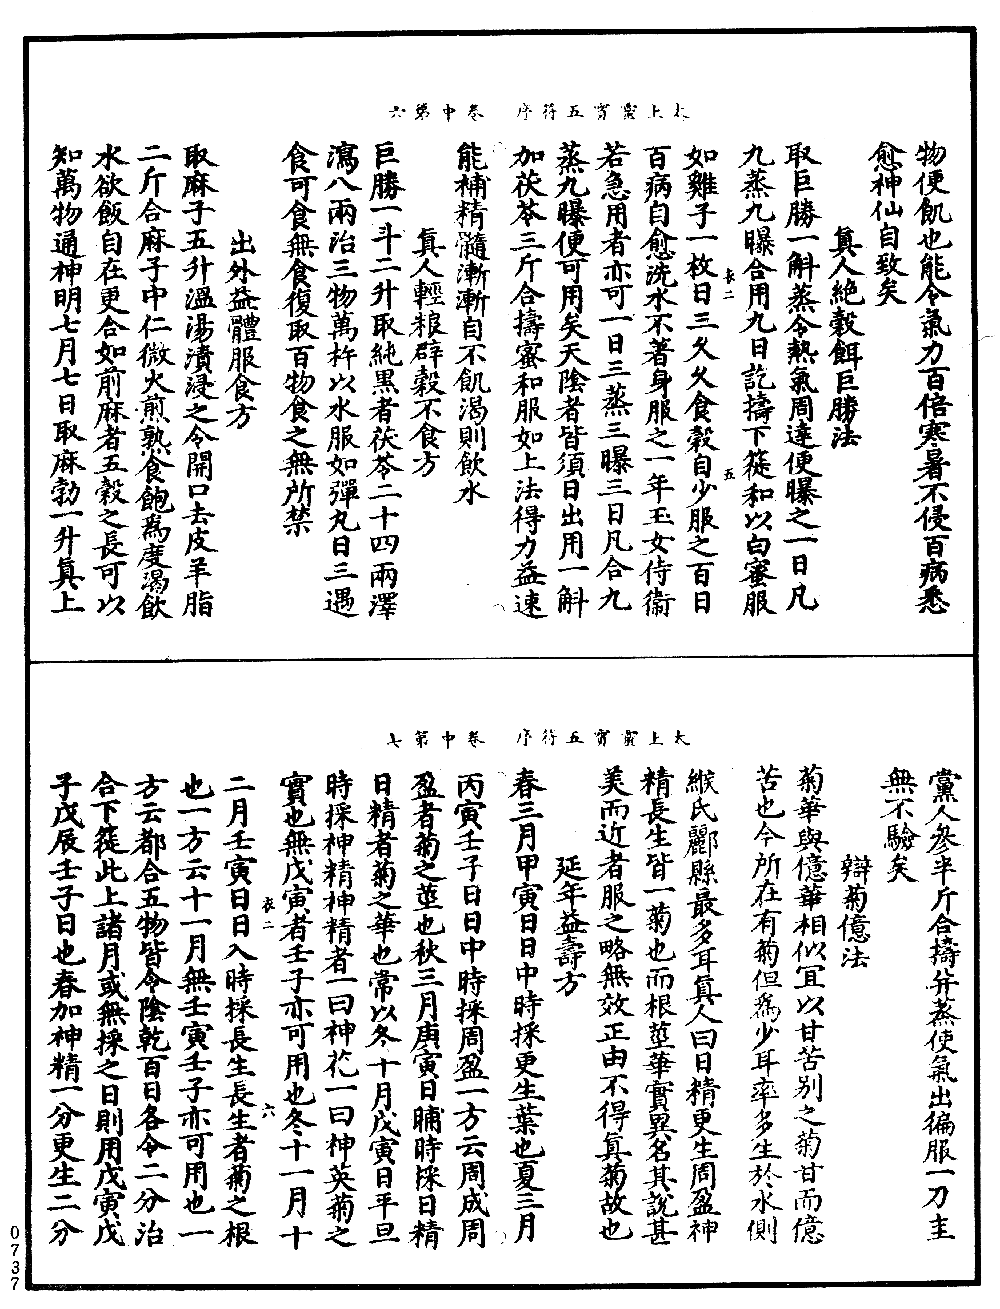 太上靈寳五符序　卷中第六
物便飢也能令氣力百倍寒暑不侵百病悉
愈神仙自致矣
眞人絶穀餌巨勝法
取巨勝一斛蒸令熱氣周達便曝之一日凡
九蒸九曝合用九日訖擣下簁和以白蜜服
衣二　五
如雞子一枚日三久久食穀自少服之百日
百病自愈洗水不著身服之一年玉女侍衞
若急用者亦可一日三蒸三曝三日凡合九
蒸九曝便可用矣天陰者皆須日出用一斛
加茯苓三斤合擣蜜和服如上法得力益速
能補精髓漸漸自不飢渴則飲水
眞人輕粮辟穀不食方
巨勝一斗二升取純黑者茯苓二十四兩澤
瀉八兩治三物萬杵以水服如彈丸日三遇
食可食無食復取百物食之無所禁
出外益體服食方
取麻子五升溫湯漬浸之令開口去皮羊脂
二斤合麻子中仁微火煎熟食飽爲度渴飲
水欲飯自在更合如前麻者五穀之長可以
知萬物通神明七月七日取麻勃一升眞上
太上靈寳五符序　卷中第七
黨人參半斤合擣并蒸使氣出徧服一刀圭
無不驗矣
辯菊億法
菊華與億華相似宜以甘苦别之菊甘而億
苦也今所在有菊但爲少耳率多生於水側
緱氏酈縣最多耳眞人曰日精更生周盈神
精長生皆一菊也而根莖華實異名其說甚
美而近者服之略無效正由不得眞菊故也
延年益壽方
春三月甲寅日日中時採更生葉也夏三月
丙寅壬子日日中時採周盈一方云周成周
盈者菊之莖也秋三月庚寅日晡時採日精
日精者菊之華也常以冬十月戊寅日平旦
時採神精神精者一曰神花一曰神英菊之
實也無戊寅者壬子亦可用也冬十一月十
衣二　六
二月壬寅日日入時採長生長生者菊之根
也一方云十一月無壬寅壬子亦可用也一
方云都合五物皆令陰乾百日各令二分治
合下簁此上諸月或無採之日則用戊寅戊
子戊辰壬子日也春加神精一分更生二分
0737